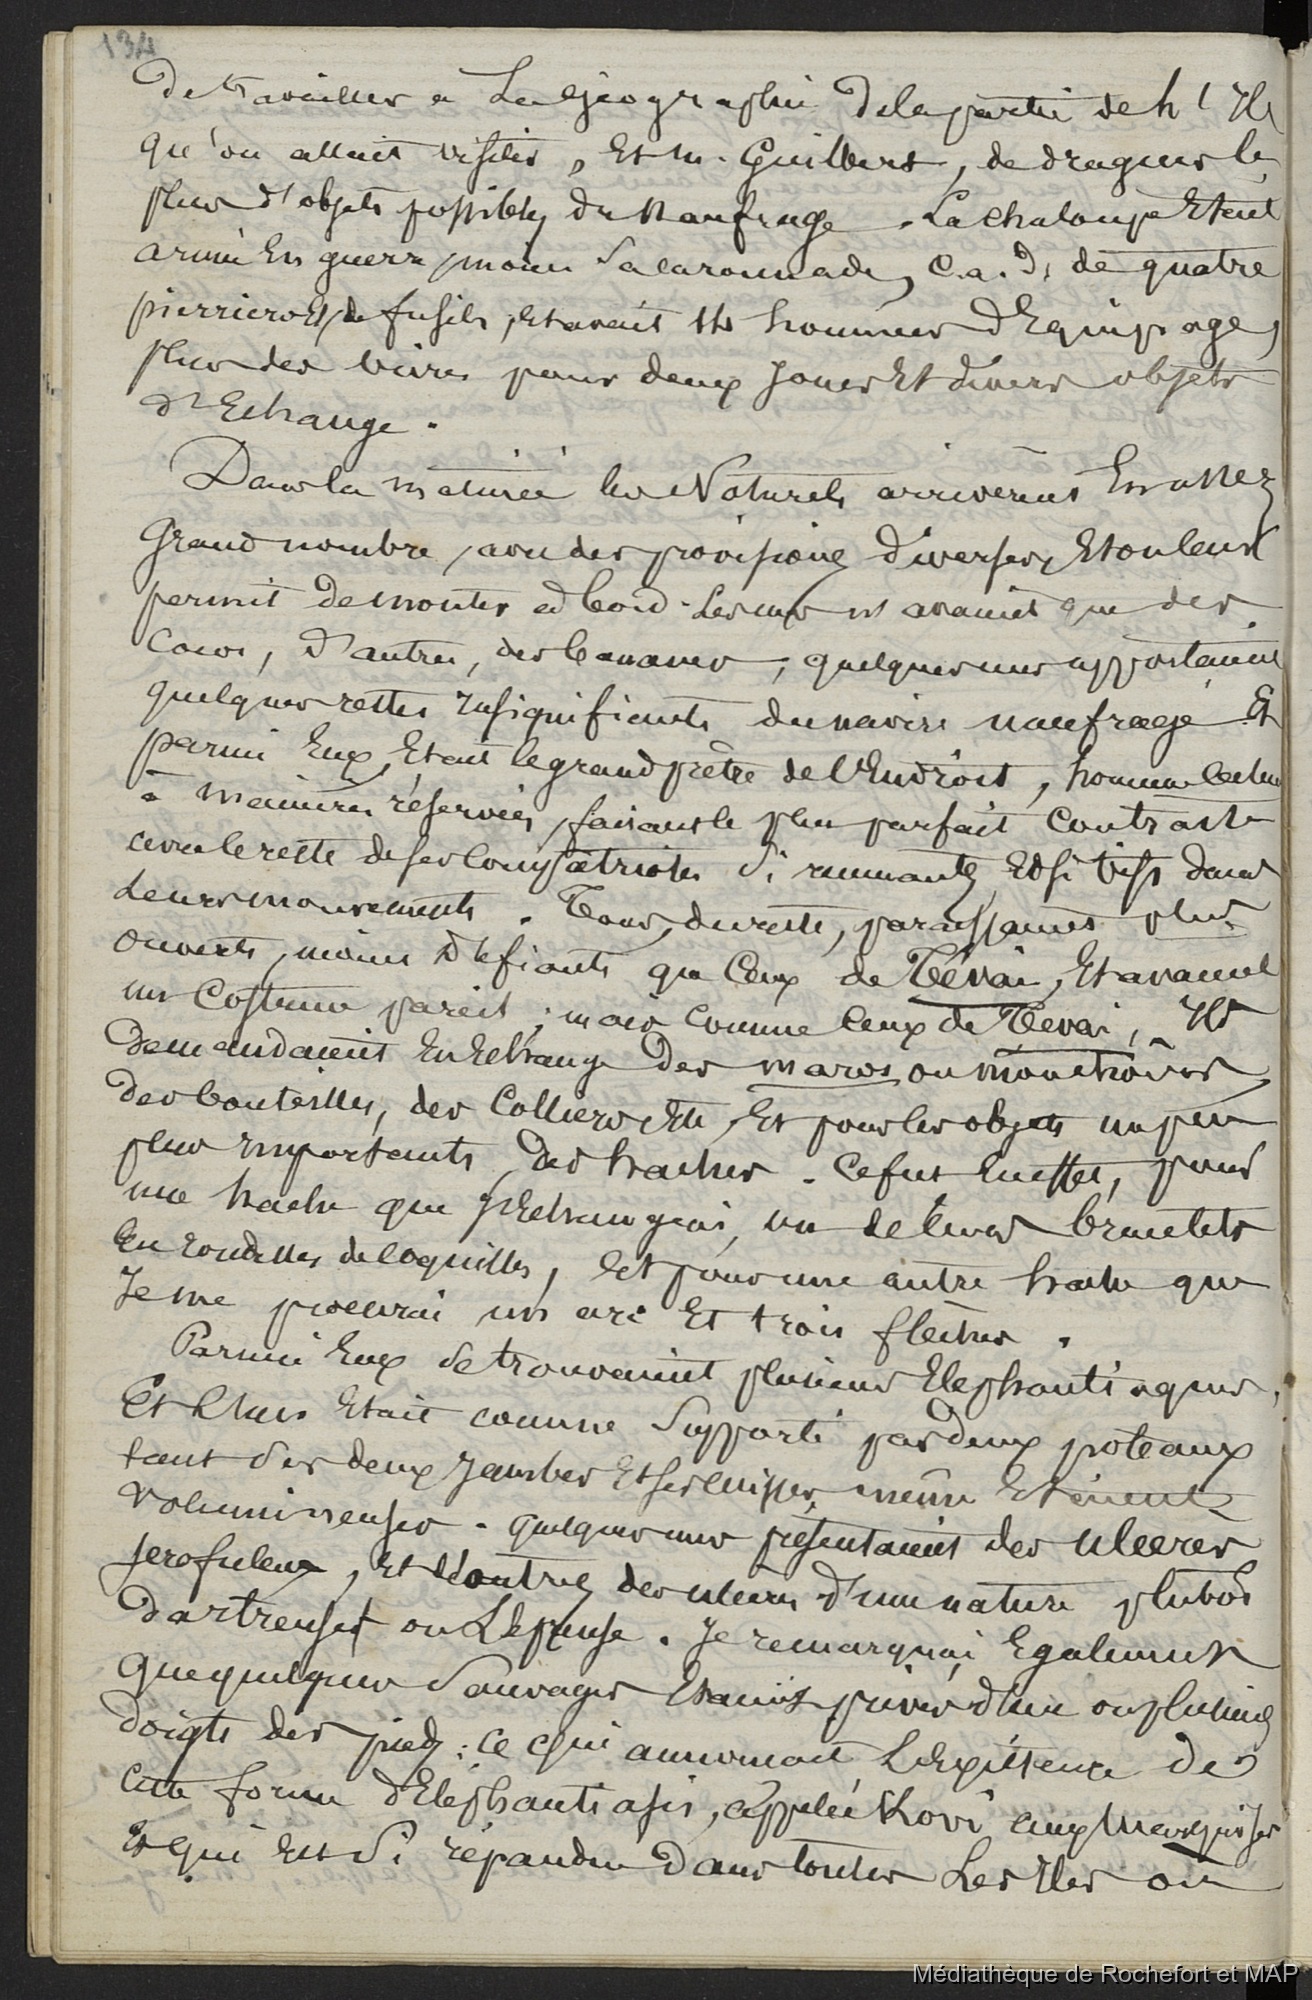 134
De travailler a La géographie De la partie de l'Ile
qu'on allait visiter, Et M. Guilbert, de draguer le
plus d'objets possibles du Naufrage. La chaloupe Etait
armée En guerre, moins Sa caronnade, c.a.d. de quatre
pierriers Et de fusils, Et avait homme D'Equipage,
plus des vivres pour deux Jours Et divers objets
D'Echange.
Dans la matinée les Naturels arriverent En assez
Grand nombre, avec des provisions Diverses, Et on leur
permit De monter a bord. Les uns n'avaient que des
cocos, D'autres, des bananes, quelques uns apportaient
quelques restes Insignifiants du navire naufragé. Et
parmi Eux, Etait le grand prêtre de l'Endroit, homme
à manières réservées, faisant le plus parfait contraste
avec le reste de ses compatriotes Si remuants, Et Si vifs dans
Leurs mouvements. Tous, du reste, paraissaient plus
ouverts, moins Défiants que Ceux de Tévai, Et avaient
un Costume pareil; mais comme Ceux de Tevai, Ils
Demandaient En Echange Des maros ou mouchoirs,
Des bouteilles, des Colliers Etc, Et pour les objets un peu
plus Importants, des haches. Ce fut En effet, pour
une hache que J'Echangeai, un de leurs bracelets
En rondelles de Coquilles, Et pour une autre hache que
Je me procurai un arc Et trois flèches.
Parmi Eux Se trouvaient plusieurs Elephantiaques,
Et L'un Etait comme Supporté par deux poteaux
tant Ses deux Jambes Et ses cuisses même Etaient
Volumineuses. quelques uns présentaient des ulcères
scrofuleux, Et d'autres des ulcères D'une nature plutôt
Dartreuse ou Lépreuse. Je remarquai Egalement
que quelques Sauvages Etaient privés d'un ou plusieurs
Doigts des pieds: ce qui annoncait L'Existence de
cette forme D'Eléphantiasis, appelée Kovi aux Marquises
Et qui Est Si répandue Dans toutes Les Iles où
Médiathèque de Rochefort et MAP